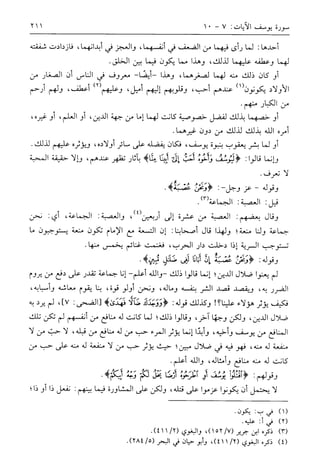 سورة يوسف الآيات: ٧ - ١٠ ٢١١
أحدها: لما رأى فيهما من الضعف في أنفسهما، والعجز في أبدانهما، فازدادت شفقته
لهما وعطفه عليهما لذلك، وهذا مما يكون فيما بين الخلق.
أو كان ذلك منه لهما لصغرهما، وهذا -أيضًا- معروف في الناس أن الصغار من
الأولاد يكونون(١) عندهم أحب، وقلوبهم إليهم أميل، وعليهم(٢) أعطف، ولهم أرحم
من الكبار منهم.
أو خصهما بذلك لفضل خصوصية كانت لهما إما من جهة الدين، أو العلم، أو غيره،
أمره الله بذلك لذلك من دون غيرهما.
أو لما بشر يعقوب بنبوة يوسف، فكان يفضله على سائر أولاده، ويؤثره عليهم لذلك.
وإنما قالوا: ﴿لَيُوسُفُ وَأَخُوهُ أَحَبُّ إِلَىٰ أَبِينَا مِنَّا﴾ بآثار تظهر عندهم، وإلا حقيقة المحبة
لا تعرف.
وقوله - عز وجل -: ﴿وَنَحْنُ عُصْبَةٌ﴾.
قيل: العصبة: الجماعة(٣).
وقال بعضهم: العصبة من عشرة إلى أربعين(٤)، والعصبة: الجماعة، أي: نحن
جماعة ولنا منعة؛ ولهذا قال أصحابنا: إن التسعة مع الإمام تكون منعة يستوجبون ما
تستوجب السرية إذا دخلت دار الحرب، فغنمت غنائم يخمس منها.
وقوله: ﴿وَنَحْنُ عُصْبَةٌ إِنَّ أَبَانَا لَفِي ضَلَالٍ مُّبِينٍ﴾.
لم يعنوا ضلال الدين؛ إنما قالوا ذلك -والله أعلم- إنا جماعة نقدر على دفع من يروم
الضرر به، ويقصد قصد الشر بنفسه وماله، ونحن أولو قوة، بنا يقوم معاشه وأسبابه،
فكيف يؤثر هؤلاء علينا؟! وكذلك قوله: ﴿وَوَجَدَكَ ضَالًّا فَهَدَىٰ﴾ [الضحى: ٧]، لم يرد به
ضلال الدين، ولكن وجهًا آخر، وقالوا ذلك؛ لما كانت له منافع من أنفسهم لم تكن تلك
المنافع من يوسف وأخيه، وأبدًا إنما يؤثر المرء حب من له منافع من قبله، لا حب من لا
منفعة له منه، فهو فيه في ضلال مبين؛ حيث يؤثر حب من لا منفعة له منه على حب من
كانت له منه منافع وأمثاله، والله أعلم.
وقولهم: ﴿اقْتُلُوا يُوسُفَ أَوِ اطْرَحُوهُ أَرْضًا يَخْلُ لَكُمْ وَجْهُ أَبِيكُمْ﴾.
لا يحتمل أن يكونوا عزموا على قتله، ولكن على المشاورة فيما بينهم: نفعل ذا أو ذا؛
(١) في ب: يكون.
(٢) في أ: عليه.
(٣) ذكره ابن جرير (١٥٢/٧)، والبغوي (٤١١/٢).
(٤) ذكره البغوي (٤١١/٢)، وأبو حيان في البحر (٢٨٤/٥).